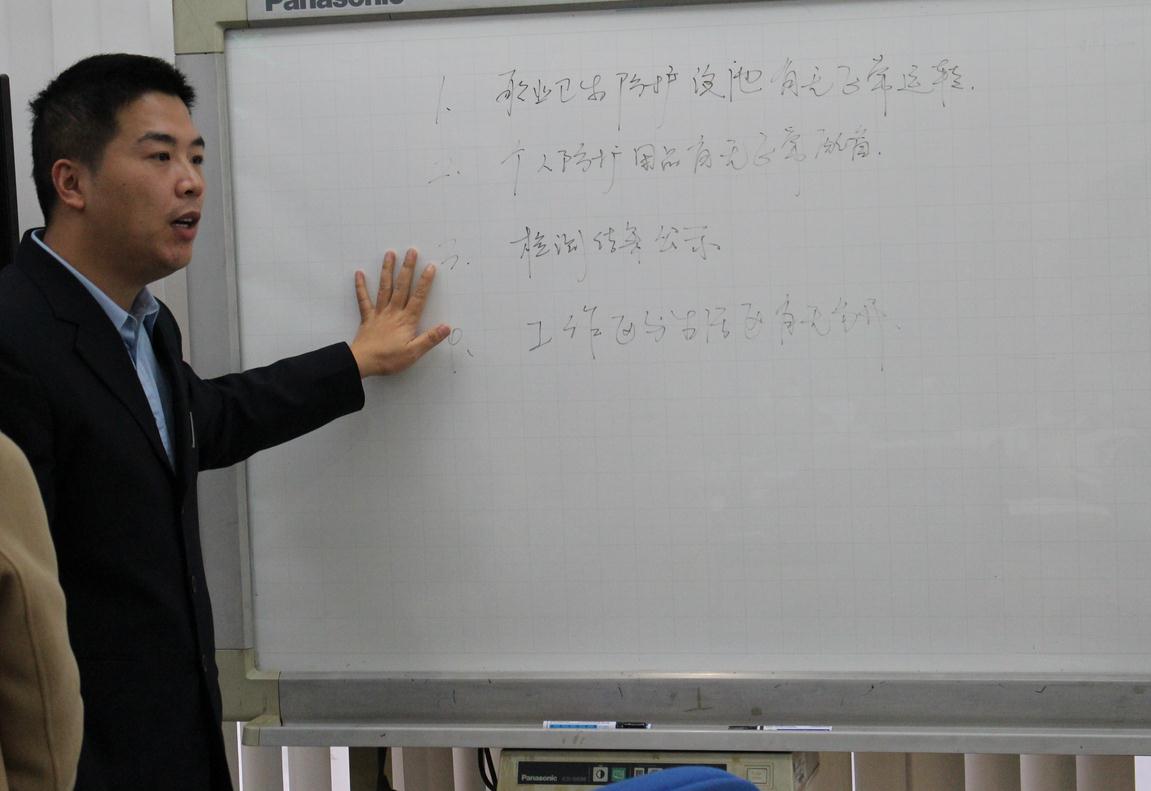 Panasonic
1. 职业卫生防护设施有无正常运转.
二. 个人防护用品有无正常
三. 检测结果公示
四、 工作区与生活区有无
Panasonic